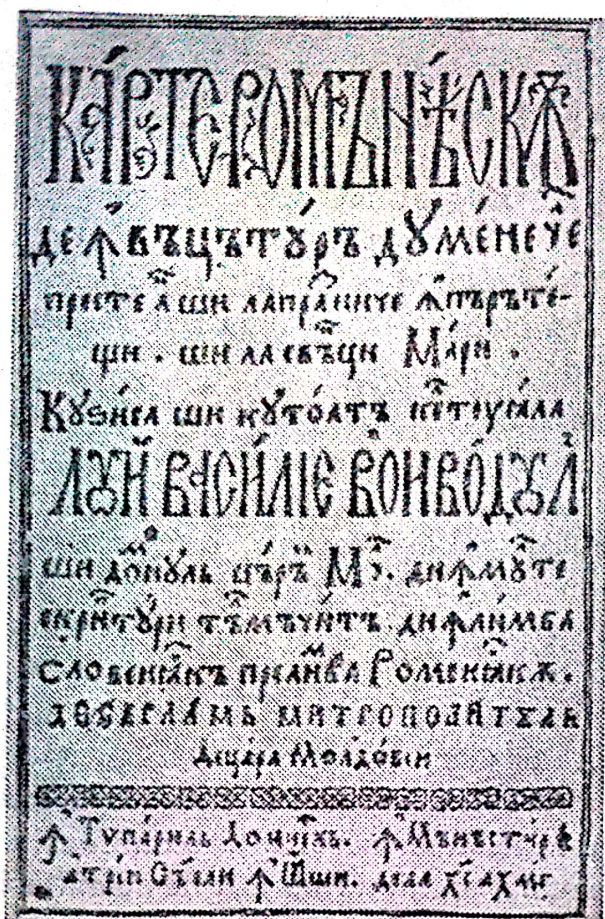 КА́РТЕ РОМѪНѢ́СКѪ
ДЕ ꙞВѢЦѢТꙋ́РЪ ДꙊМЕ́НЕЧЕ
престе а̑ ши ла пра́зниче ꙟпъръте́-
щи . ши ла свѣци Ма́ри .
Кꙋ зиса ши кꙋ тоатъ
ЛꙊЙ ВАСИ́ЛІЕ ВОИВО́ДꙊЛ
ши до́мнꙋль църъ Мо́. дин мꙋ́лте
скриптꙋ́ри тълмъчи́тъ . дин ли́мба
словеня́скъ пре ли́мба Ромѣня́скѫ .
де Варлаамь Митрополи́тꙋль
де Цара Молдо́вїи
Ꙟ Типа́рюль Домне́ск . Ꙟ Мънъсти́рѣ
а трїи Свѣ́ти Ꙟ Ꙗши .